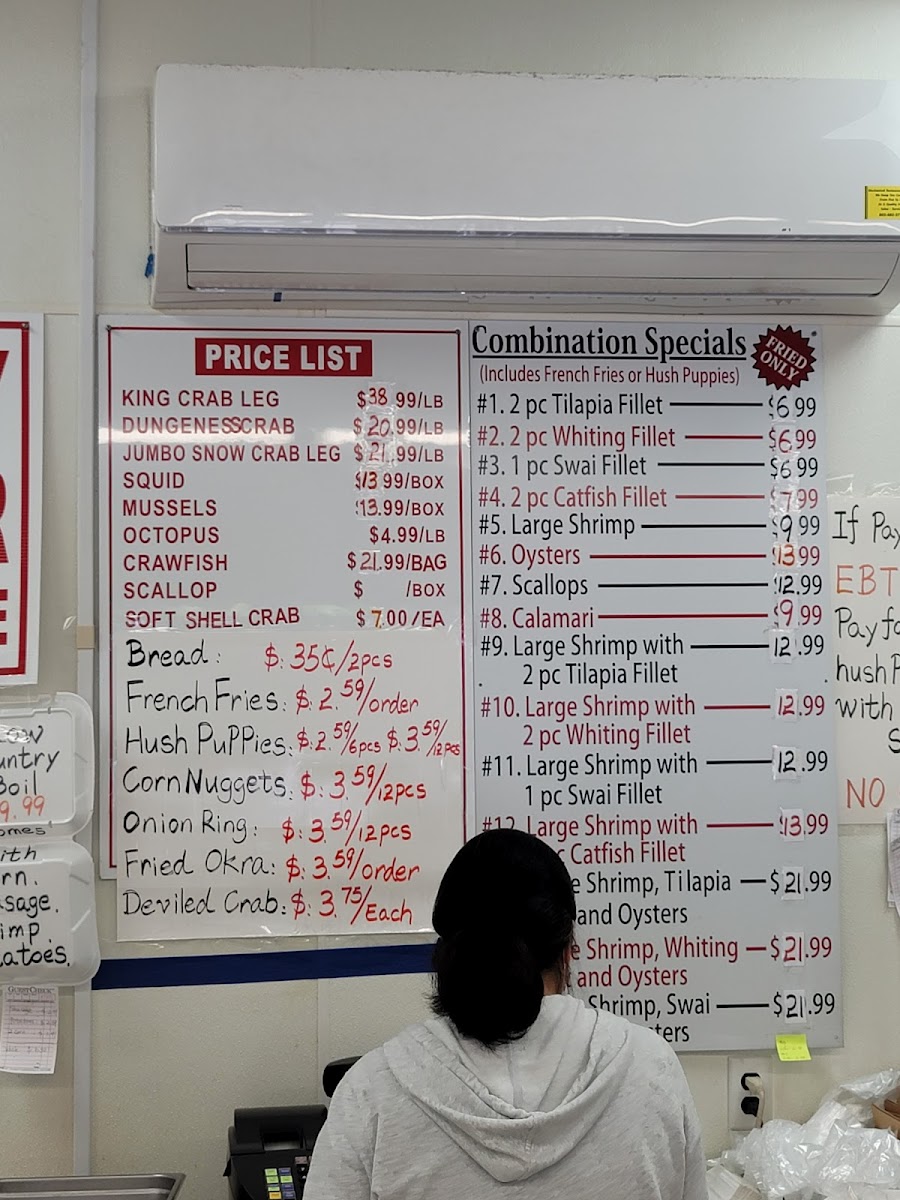 PRICE LIST
KING CRAB LEG $38.99/LB
DUNGENESSCRAB $20.99/LB
JUMBO SNOW CRAB LEG $21.99/LB
SQUID $13.99/BOX
MUSSELS 13.99/BOX
OCTOPUS $4.99/LB
CRAWFISH $21.99/BAG
SCALLOP $ /BOX
SOFT SHELL CRAB $7.00/EA
Bread: $.35¢/2pcs
French Fries: $.2.59/order
Hush PuPPies: $.2.59/6pcs $.3.59/12pcs
Corn Nuggets: $.3.59/12pcs
Onion Ring: $.3.59/12pcs
Fried Okra: $.3.59/order
Deviled Crab: $.3.75/Each
Combination Specials
FRIED
ONLY
(Includes French Fries or Hush Puppies)
#1. 2 pc Tilapia Fillet $6.99
#2. 2 pc Whiting Fillet $6.99
#3. 1 pc Swai Fillet $6.99
#4. 2 pc Catfish Fillet $7.99
#5. Large Shrimp $9.99
#6. Oysters 13.99
#7. Scallops 12.99
#8. Calamari $9.99
#9. Large Shrimp with 12.99
2 pc Tilapia Fillet
#10. Large Shrimp with 12.99
2 pc Whiting Fillet
#11. Large Shrimp with 12.99
1 pc Swai Fillet
#12. Large Shrimp with $13.99
Catfish Fillet
Shrimp, Tilapia $21.99
and Oysters
Shrimp, Whiting $21.99
and Oysters
Shrimp, Swai $21.99
If Pay
EBT
Pay fo
hush P
with
NO
Boil
9.99
GUEST CHECK